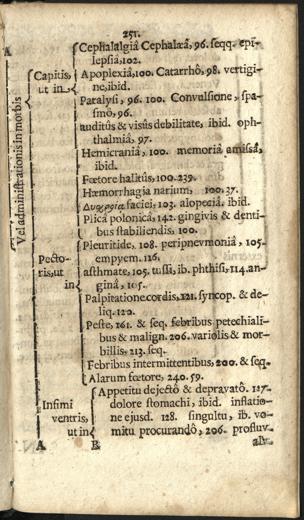 251.
A
Vel administrationis in morbis
Capitis,
ut in
Cephalalgiâ Cephalæâ, 96. seqq. epi-
lepsiâ, 102.
Apoplexiâ, 100. Catarrhô, 98. vertigi-
ne, ibid.
Paralysi, 96. 100. Convulsione, spa-
smô, 96.
auditûs & visûs debilitate, ibid. oph-
thalmiâ, 97.
Hemicraniâ, 100. memoriâ amissâ,
ibid.
Fœtore halitûs, 100. 239.
Hæmorrhagia narium, 100. 37.
faciei, 103. alopeciâ, ibid.
Plicâ polonicâ, 142. gingivis & denti-
bus stabiliendis, 100.
Pecto-
ris, ut
in
Pleuritide, 108. peripnevmoniâ, 105.
empyem. 116.
asthmate, 105. tussi, ib. phthisi, 114. an-
ginâ, 105.
Palpitatione cordis, 121. syncop. & de-
liq. 120.
Peste, 161. & seq. febribus petechiali-
bus & malign. 206. variolis & mor-
billis, 213. seq.
Febribus intermittentibus, 200. & seq.
Alarum fœtore, 240. 59.
Infimi
ventris,
ut in
Appetitu dejectô & depravatô. 127.
dolore stomachi, ibid. inflatio-
ne ejusd. 128. singultu, ib. vo-
mitu procurandô, 206. profluv.
A
B
alv.